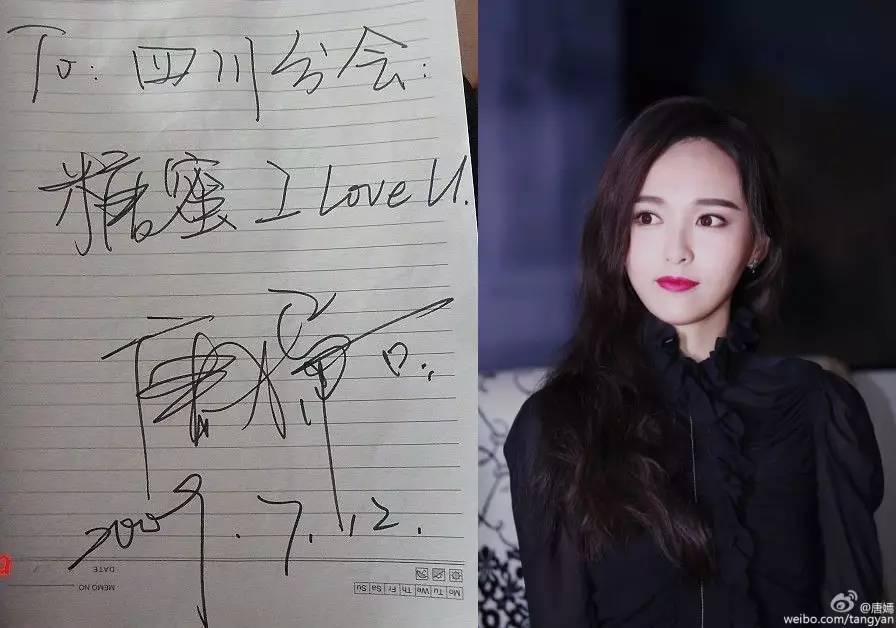 To: 四川分会:
糖蜜 I Love U.
唐嫣
2009.7.12.
DATE
MEMO NO
Mo Tu We Th Fr Sa Su
@唐嫣
weibo.com/tangyan